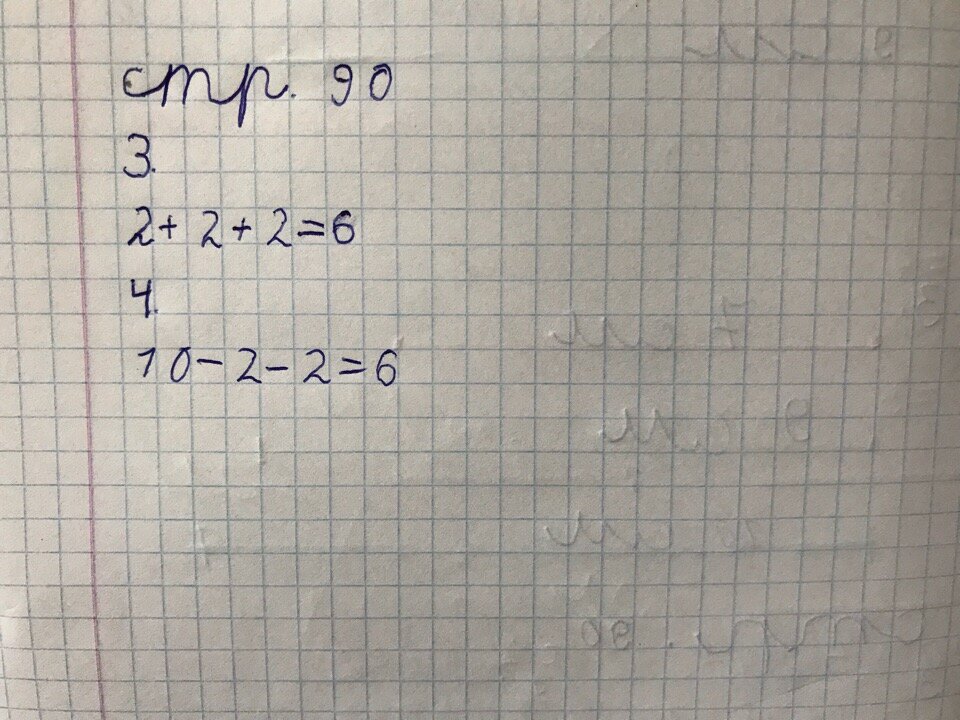 стр. 90
3.
2+ 2+2=6
4.
10-2-2=6